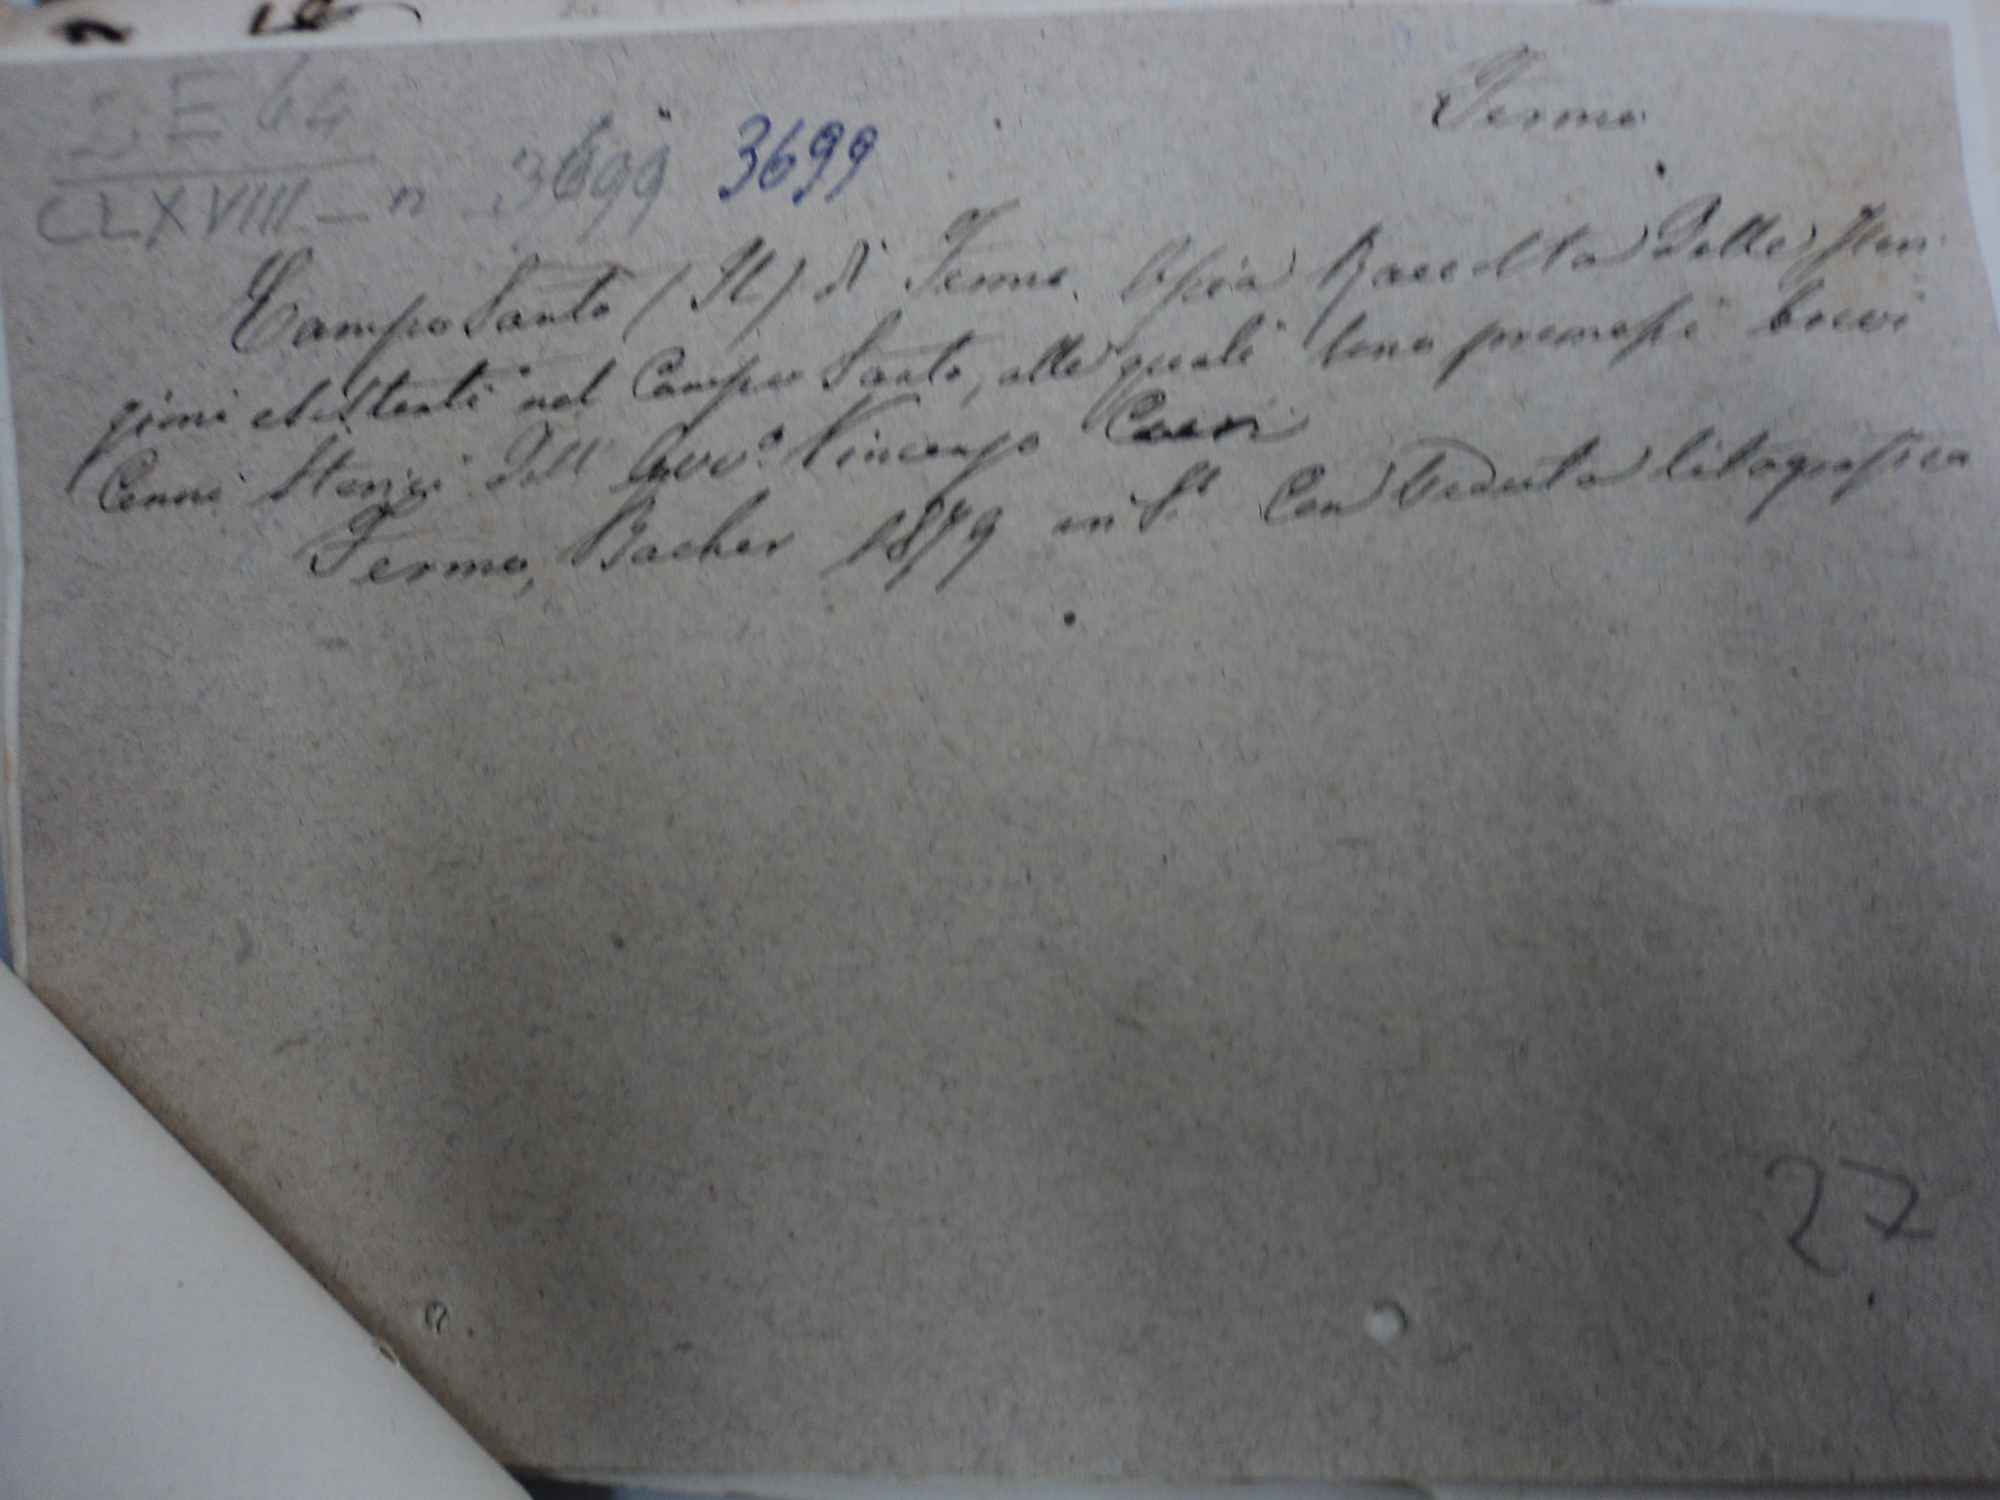 Fermo
DE 64
CLXVIII - n 3699 3699
Campo Santo (Il) di Fermo. Ossia Raccolta delle Iscri
zioni esistenti nel Campo Santo, alle quali sono premessi brevi
Cenni Storici dell' Avvo. Vincenzo Curi
Fermo, Bacher 1879 in 8° Con Veduta litografica
27